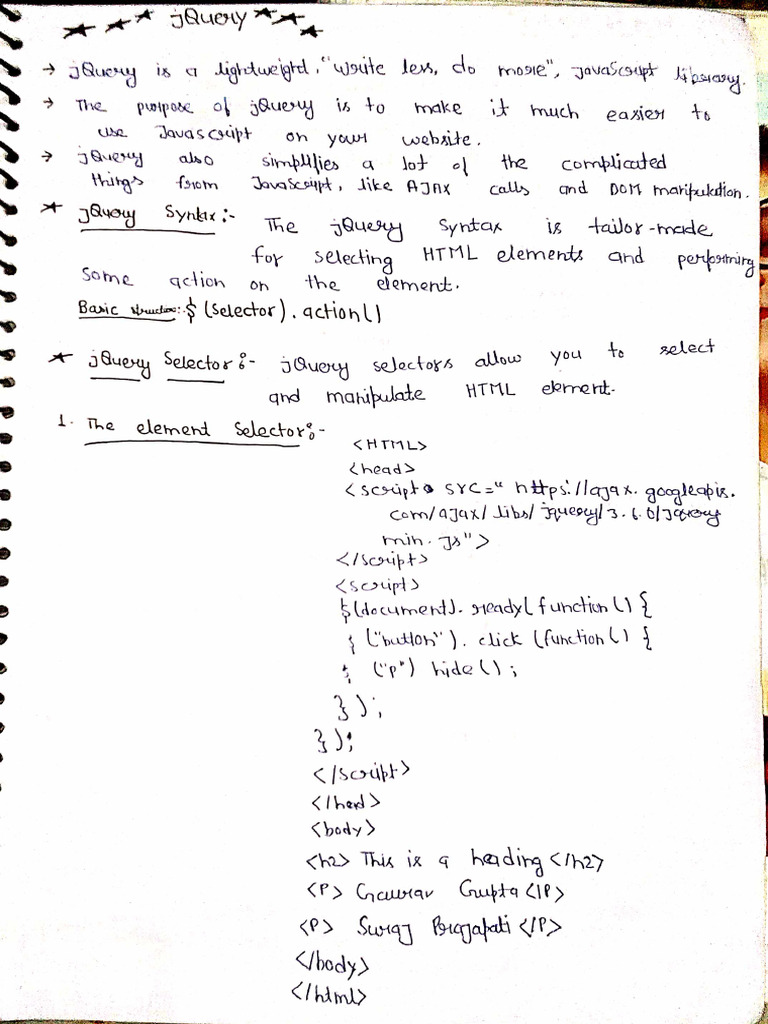 ★ ★ ★ jQuery ★ ★ ★
→ jQuery is a lightweight, "write less, do more", JavaScript library.
→ The purpose of jQuery is to make it much easier to
use Javascript on your website.
→ jQuery also simplifies a lot of the complicated
things from JavaScript, like AJAX calls and DOM manipulation.
★ jQuery Syntax:- The jQuery Syntax is tailor-made
for selecting HTML elements and performing
Some action on the element.
Basic structure:- $(Selector).action()
★ jQuery Selector:- jQuery selectors allow you to select
and manipulate HTML element.
1. The element Selector:-
<HTML>
<head>
<script src="https://ajax.googleapis.
com/ajax/libs/jquery/3.6.0/jquery
min.js">
</script>
<script>
$(document).ready(function() {
$ ("button").click (function() {
$ ("p") hide();
});
});
</script>
</head>
<body>
<h2> This is a heading </h2>
<P> Gaurav Gupta </P>
<P> Suraj Prajapati </P>
</body>
</html>